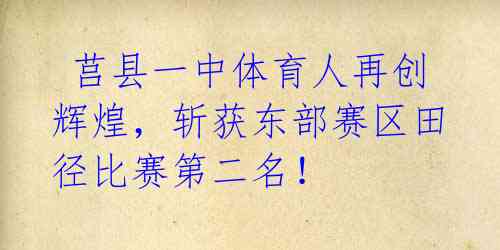 莒县一中体育人再创
辉煌，斩获东部赛区田
径比赛第二名！